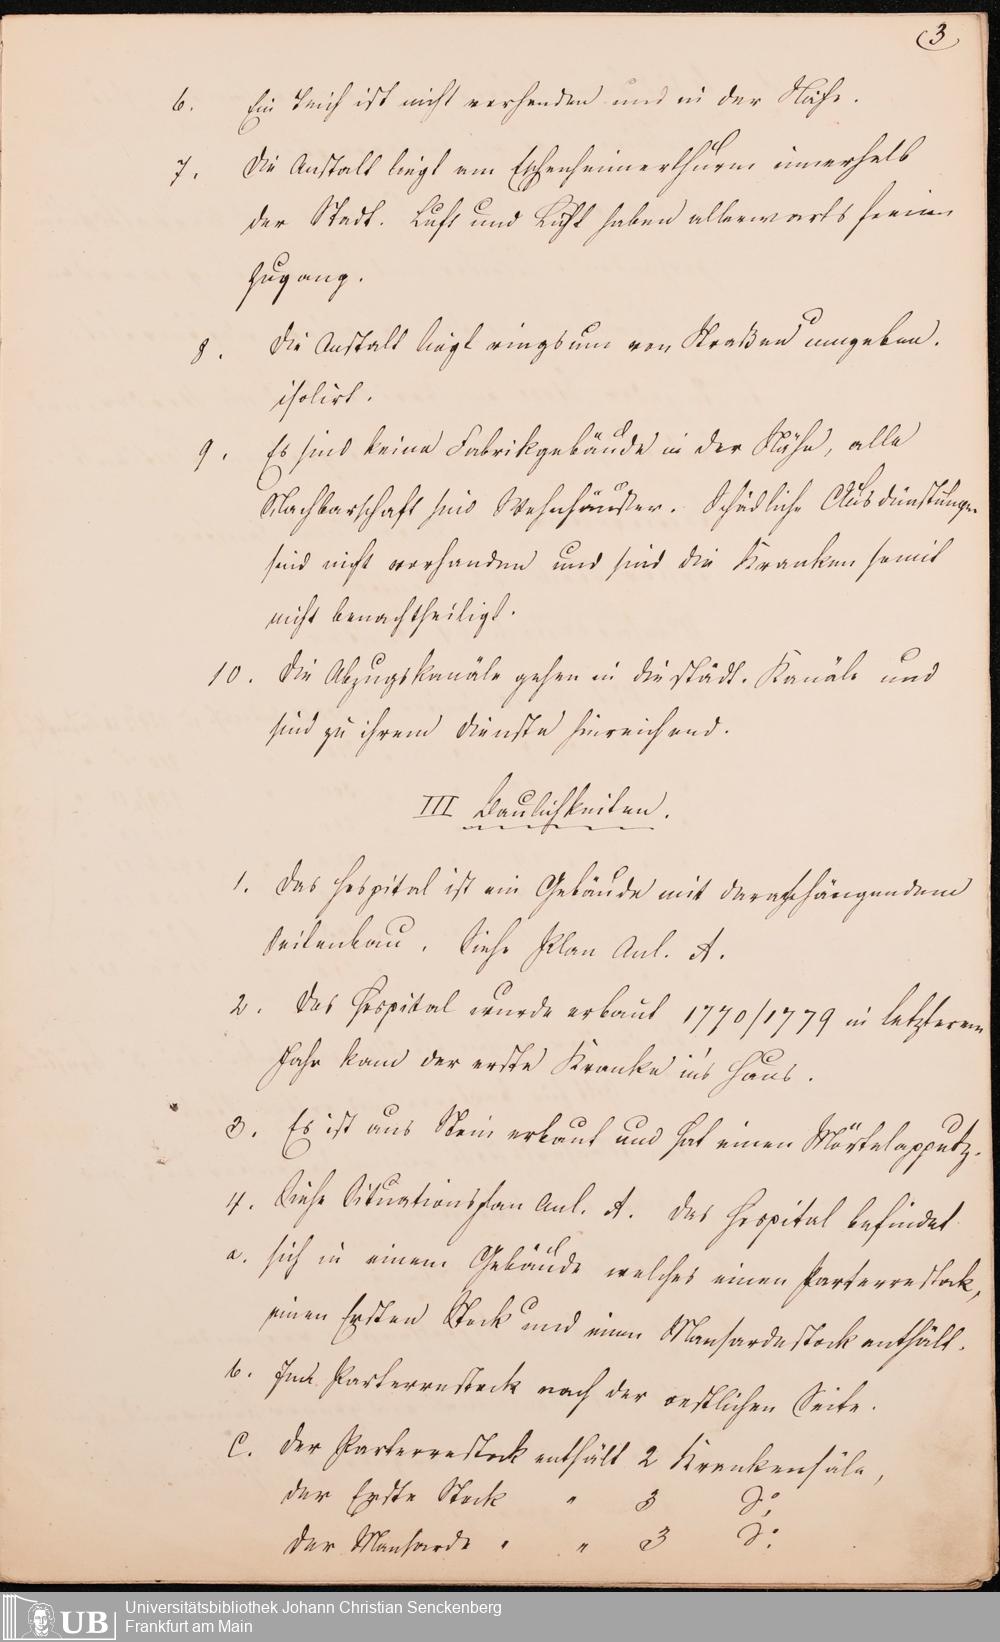 3
6. Ein Teich ist nicht vorhanden und in der Nähe.
7. Die Anstalt liegt am Eschenheimerthurm innerhalb
der Stadt. Luft und Licht haben allerwarts freien
Zugang.
8. Die Anstalt liegt ringsum von Straßen umgeben.
isolirt.
9. Es sind keine Fabrikgebäude in der Nähe, alle
Nachbarschaft sind Wohnhäuser. Schädliche Ausdünstungen
sind nicht vorhanden und sind die Kranken somit
nicht benachtheiligt.
10. Die Abzugskanäle gehen in die städt. Kanäle und
sind zu ihrem Dienste hinreichend.
III Baulichkeiten.
1. Das Hospital ist ein Gebäude mit daranhängendem
Seitenbau. Siehe Plan Anl. A.
2. Das Hospital wurde erbaut 1770/1779 in letzterem
Jahr kam der erste Kranke in's Haus.
3. Es ist aus Stein erbaut und hat einen Mörtelapputz.
4. Siehe Situationsplan Anl. A. Das Hospital befindet
a. sich in einem Gebäude welches einen Parterrestock,
einen Ersten Stock und einen Mansardestock enthält.
b. Im Parterrestock nach der oestlichen Seite.
c. Der Parterrestock enthält 2 Krankensäle,
der Erste Stock " 3 Do.
der Mansarde " " 3 Do.
UB Universitätsbibliothek Johann Christian Senckenberg
Frankfurt am Main